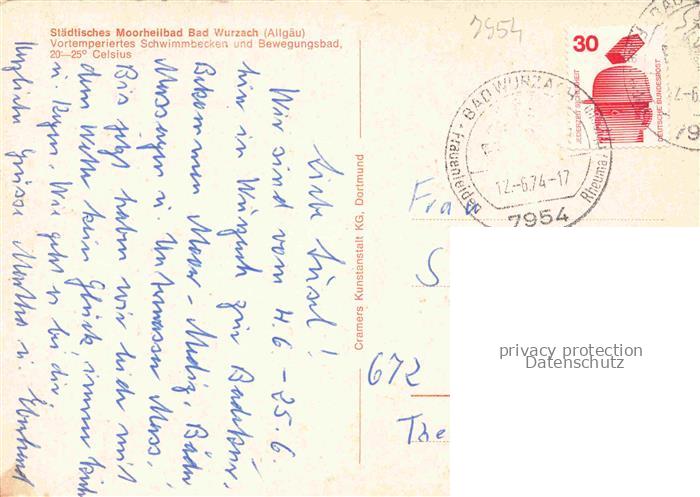 Städtisches Moorheilbad Bad Wurzach (Allgäu)
Vortemperiertes Schwimmbecken und Bewegungsbad,
20—25° Celsius
Liebe Lüsel!
Wir sind vom 4.6. - 25.6.
hier in Wurzach zur Badekur.
Bekommen Moor-Mediz. Bäder
Massagen u. Unterwasser Mass.
Bis jetzt haben wir leider mit
dem Wetter kein Glück immer kühl
u. Regen. Wie geht es bei dir
Herzliche Grüsse Martha u. Eberhard
Cramers Kunstanstalt KG, Dortmund
7954
30
JEDERZEIT SICHERHEIT
DEUTSCHE BUNDESPOST
BAD WURZACH
Frauenleiden
Rheuma
12.-6.74-17
7954
BAD
2.-6
79
Frau
S
672
The
privacy protection
Datenschutz